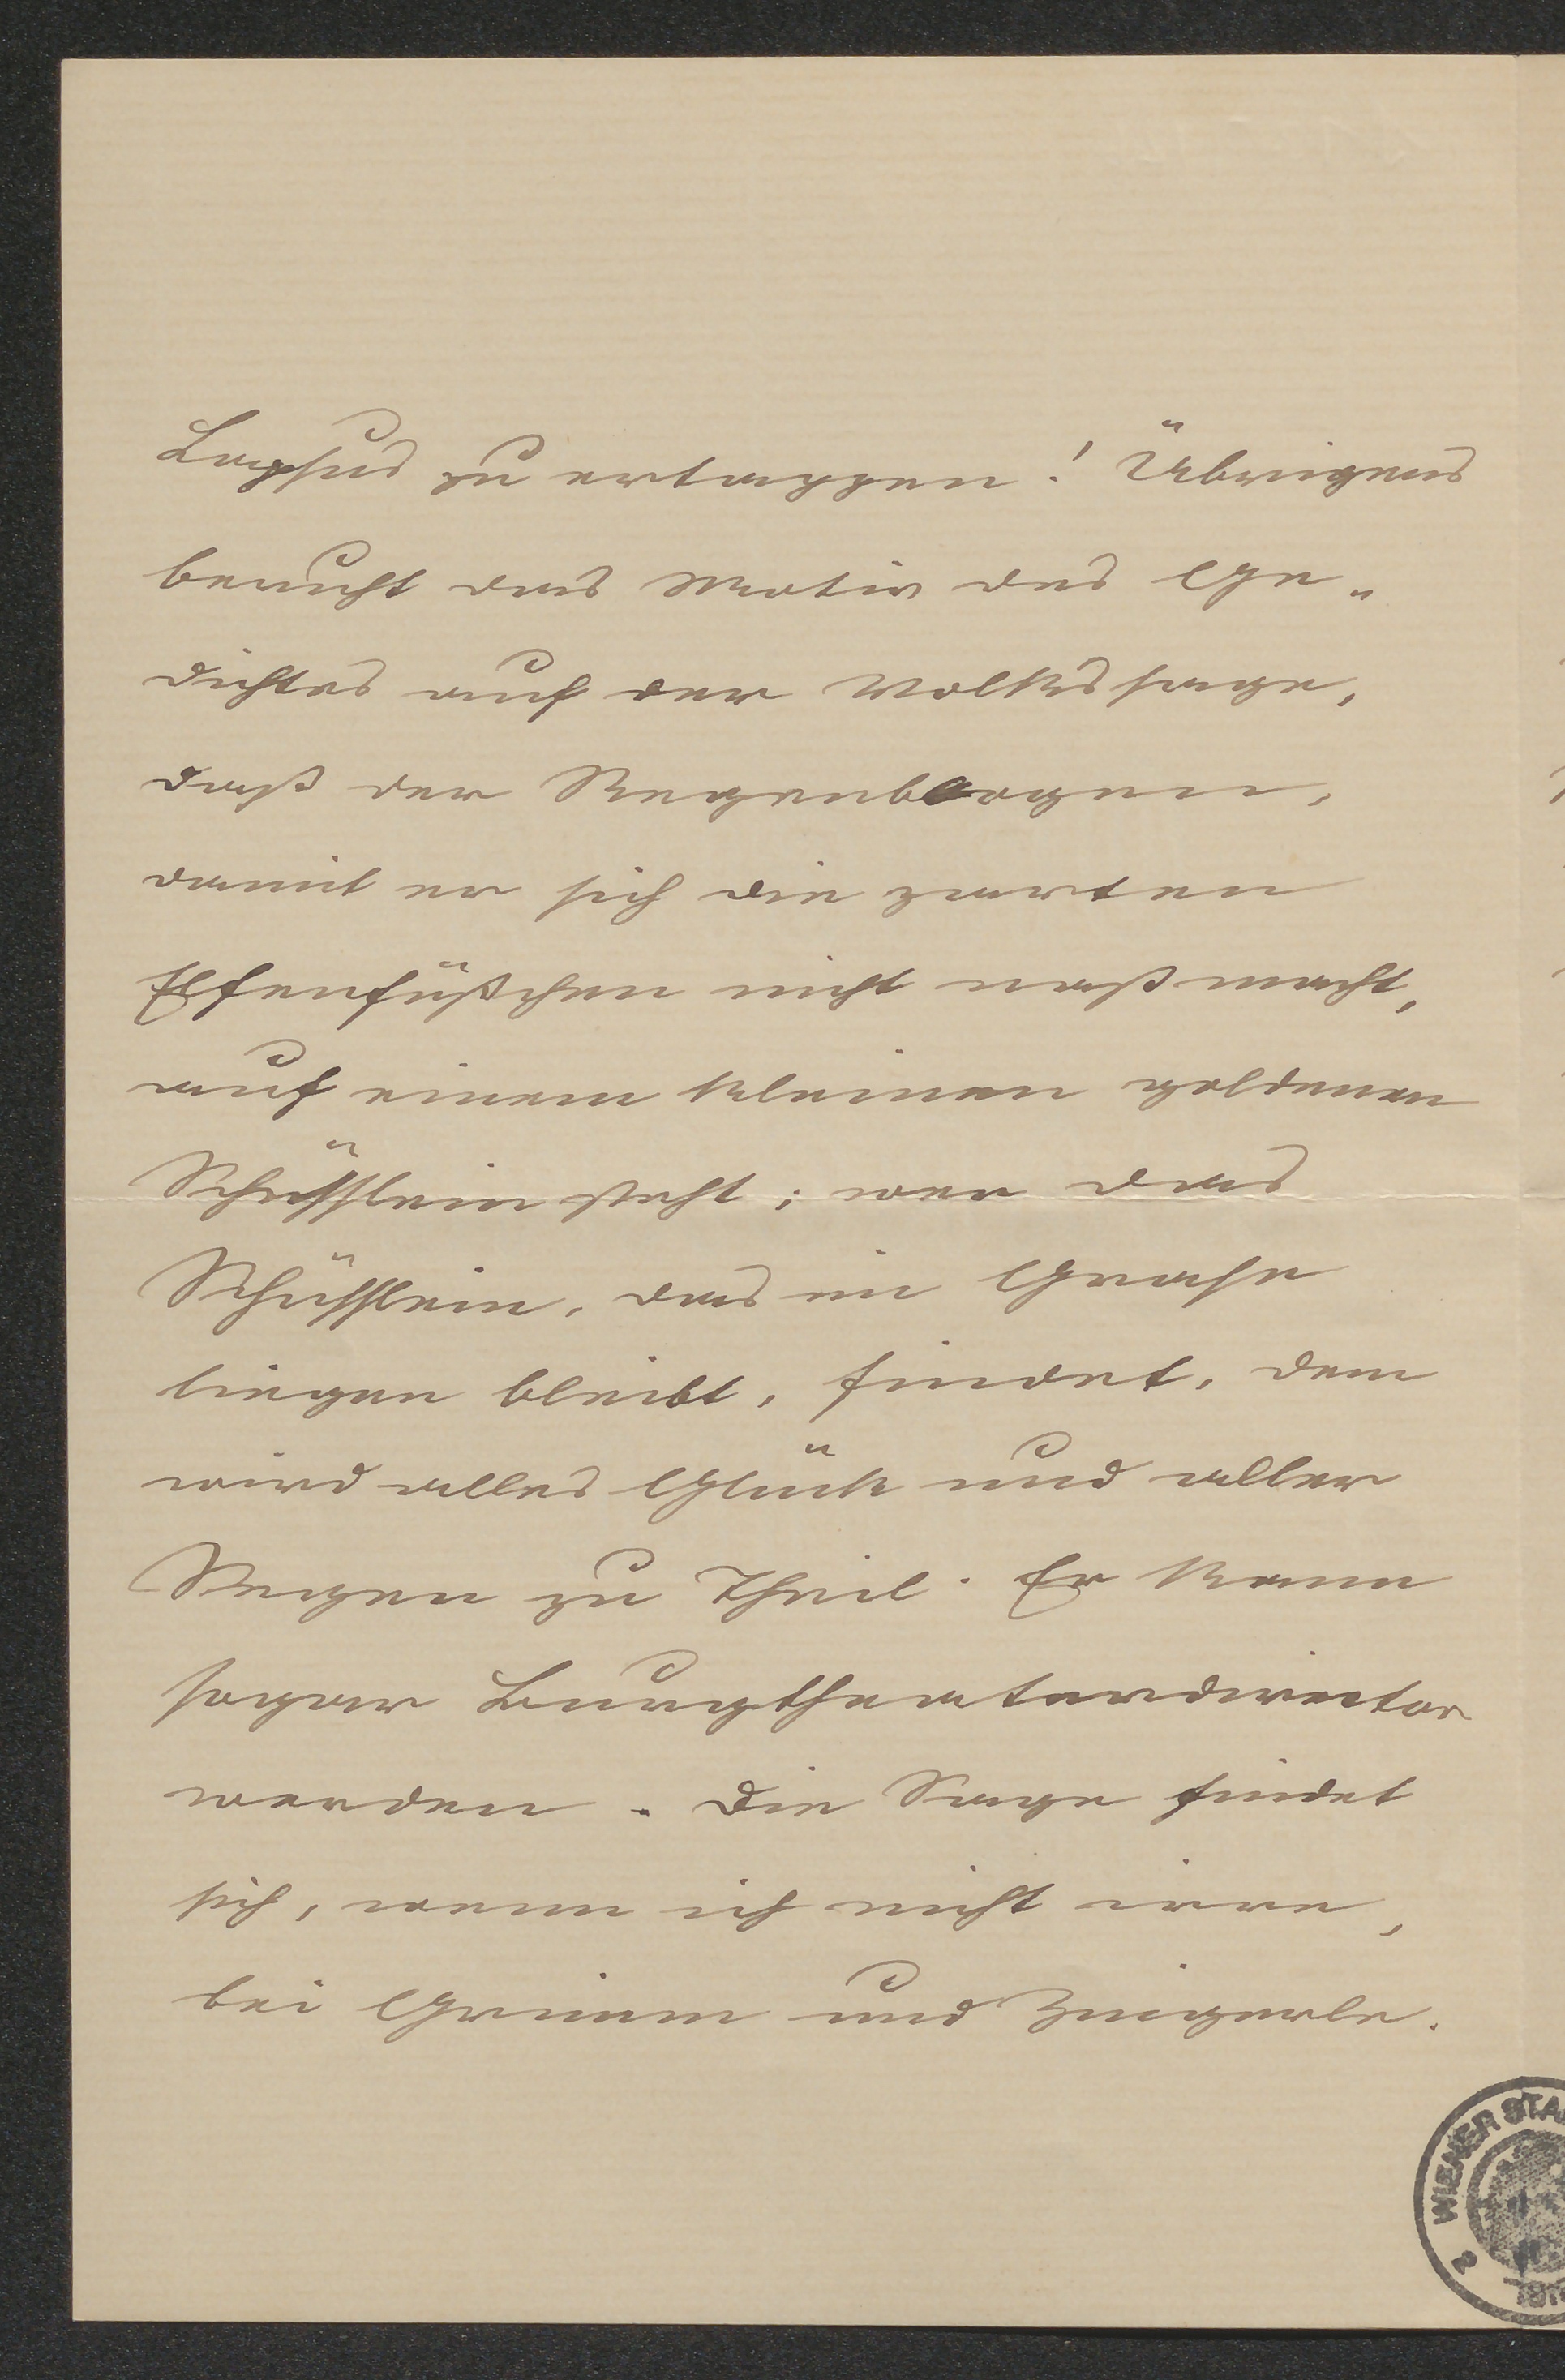 Lapsus zu ertappen! Übrigens
beruht das Motiv des Ge„
dichtes auf der Volkssage,
daß der Regenbogen,
damit er sich die zarten
Elfenfüßchen nicht naß macht,
auf einem kleinen goldenen
Schüsslein steht; wer das
Schüsslein, das im Grase
liegen bleibt, findet, dem
wird alles Glück und aller
Segen zu Theil. Er kann
sogar Burgtheaterdirector
werden. Die Sage findet
sich, wenn ich nicht irre,
bei Grimm und Zingerle.
WIENER STA
2